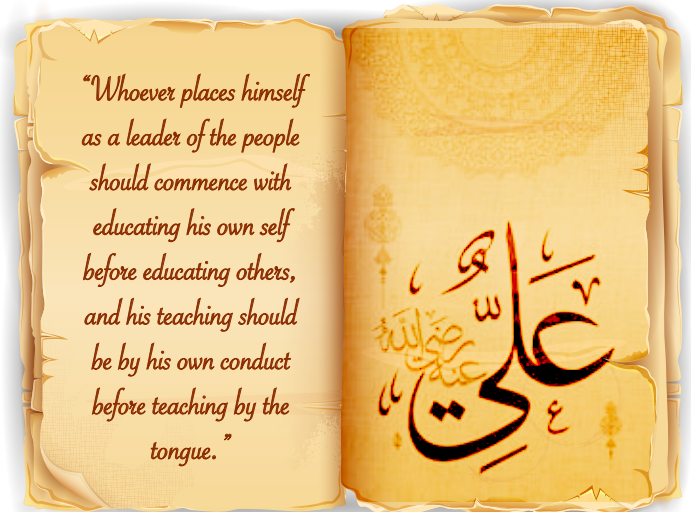 “Whoever places himself
as a leader of the people
should commence with
educating his own self
before educating others,
and his teaching should
be by his own conduct
before teaching by the
tongue.”
عَلِيٌّ
رضي الله عنه